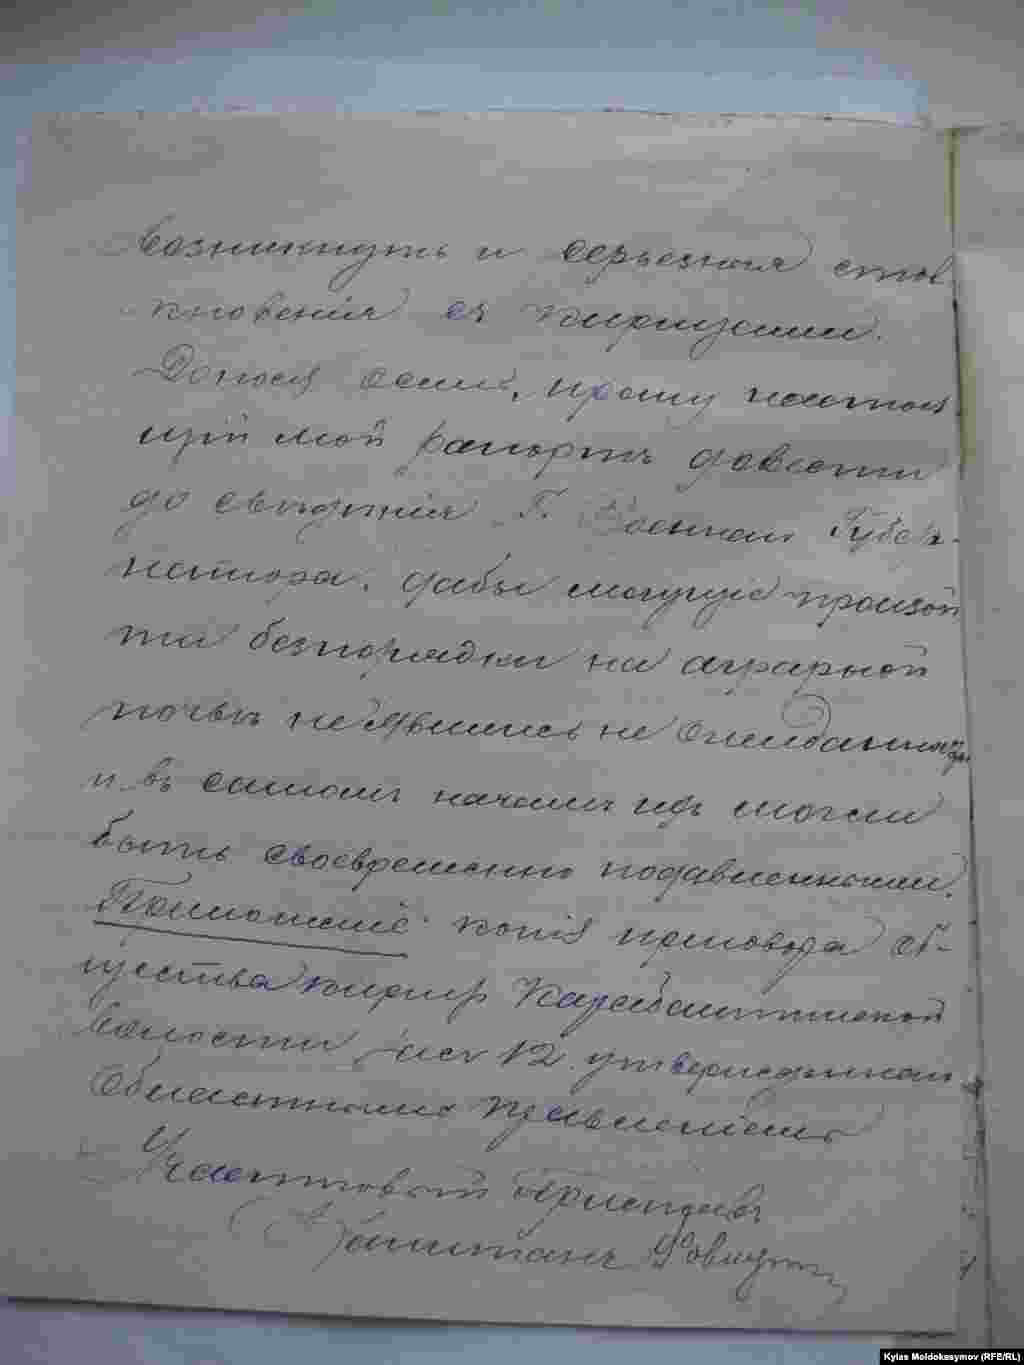 возникнуть и серьезныя стол
кновенія съ киргизами.
Донося о семъ, прошу настоя
щій мой рапортъ довести
до свѣдѣнія Г. Военнаго Губер-
натора, дабы могущіе произой
ти безпорядки на аграрной
почвѣ не явились не ожиданными
и въ самомъ началѣ ихъ могли
быть своевременно подавленными.
Приложеніе: копія приговора об-
щества киргиз Карабашинской
волости за № 12. утвержденнаго
Областнымъ Правленіемъ
Участковый Приставъ
Капитанъ
Kylas Moldokasymov (RFE/RL)